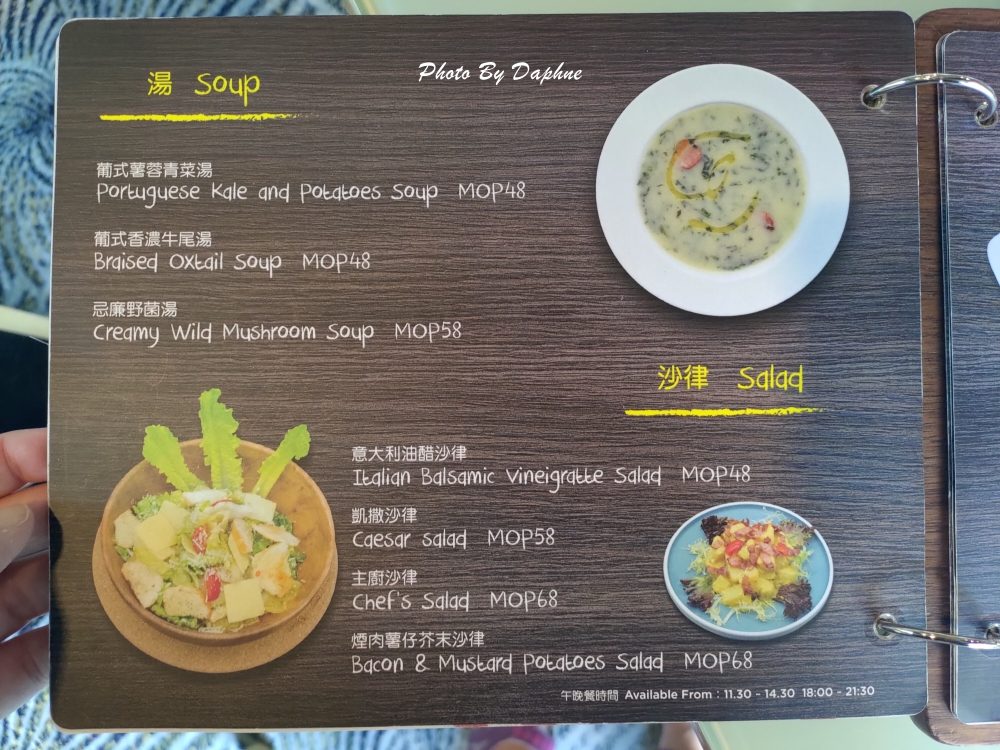 湯 Soup
Photo By Daphne
葡式薯蓉青菜湯
Portuguese Kale and Potatoes Soup MOP48
葡式香濃牛尾湯
Braised Oxtail Soup MOP48
忌廉野菌湯
Creamy Wild Mushroom Soup MOP58
沙律 Salad
意大利油醋沙律
Italian Balsamic Vineigratte Salad MOP48
凱撒沙律
Caesar salad MOP58
主廚沙律
Chef's Salad MOP68
煙肉薯仔芥末沙律
Bacon & Mustard Potatoes Salad MOP68
午晚餐時間 Available From : 11.30 - 14.30 18:00 - 21:30